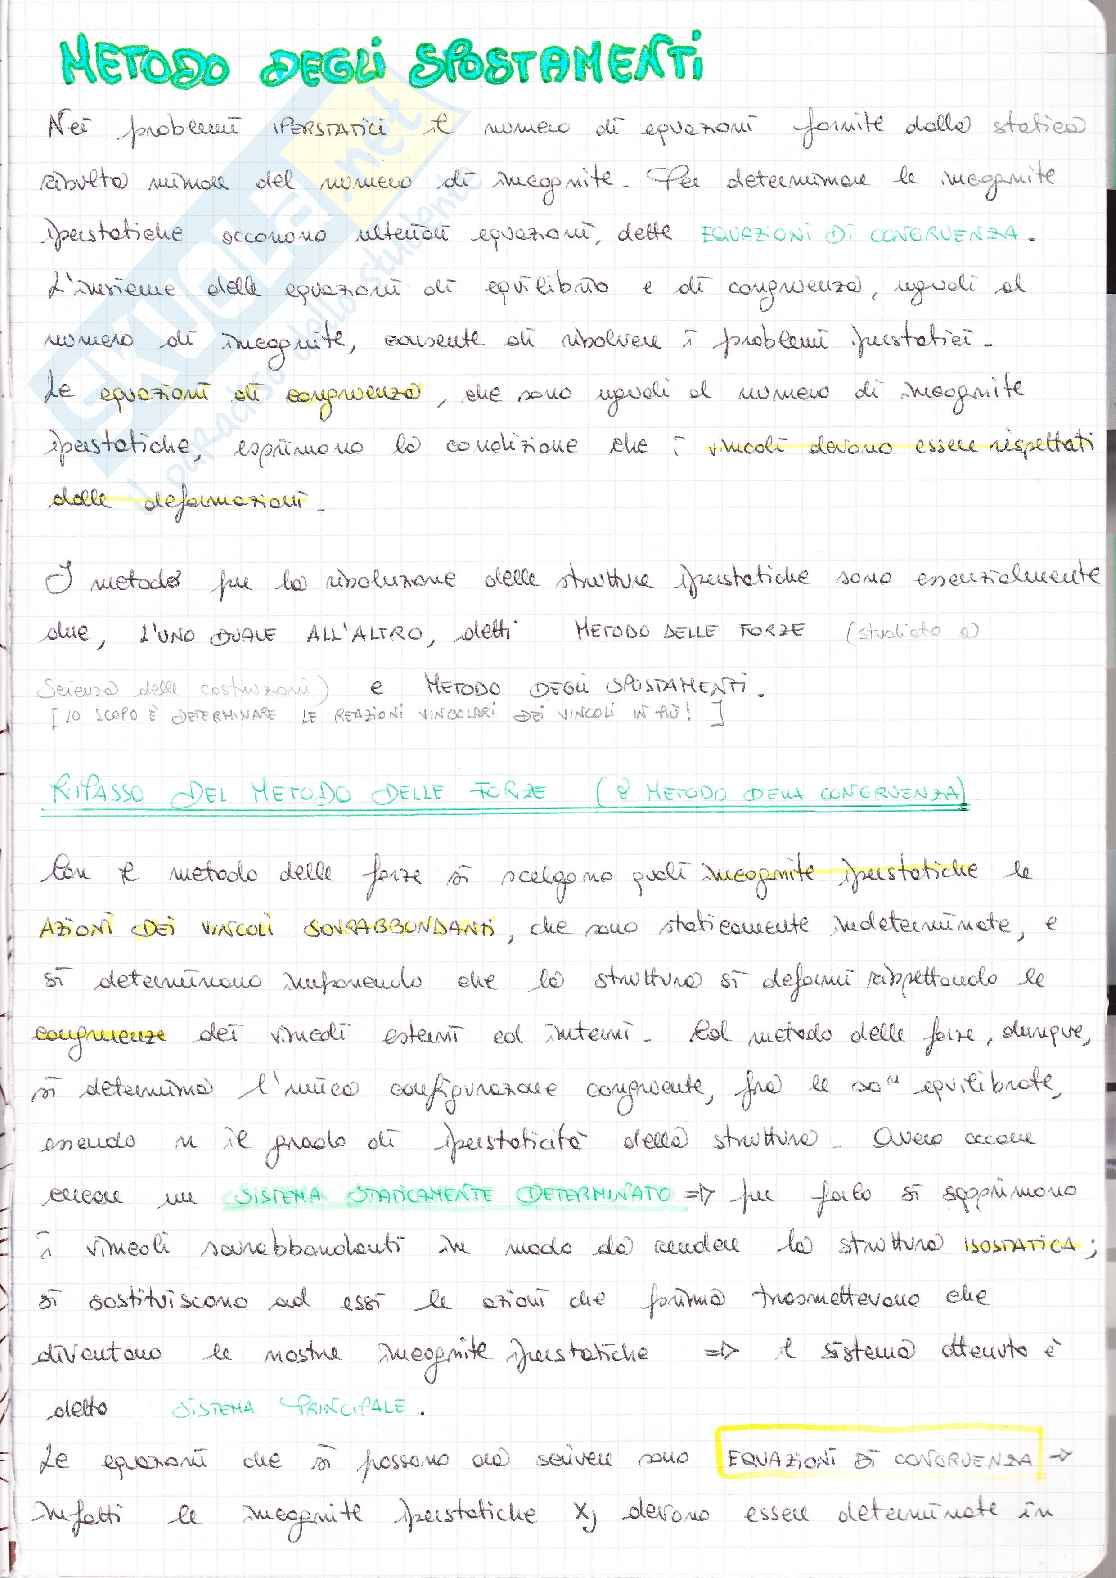 METODO DEGLI SPOSTAMENTI
Nei problemi IPERSTATICI il numero di equazioni fornite dalla statica
risulta minore del numero di incognite. Per determinare le incognite
iperstatiche occorrono ulteriori equazioni, dette EQUAZIONI DI CONGRUENZA.
L'insieme delle equazioni di equilibrio e di congruenza, uguali al
numero di incognite, consente di risolvere i problemi iperstatici.
Le equazioni di congruenza, che sono uguali al numero di incognite
iperstatiche, esprimono la condizione che i vincoli devono essere rispettati
dalle deformazioni.
I metodi per la risoluzione delle strutture iperstatiche sono essenzialmente
due, L'UNO DUALE ALL'ALTRO, detti METODO DELLE FORZE (studiato a
Scienza delle costruzioni) e METODO DEGLI SPOSTAMENTI.
[LO SCOPO È DETERMINARE LE REAZIONI VINCOLARI DEI VINCOLI IN PIÙ!]
RIPASSO DEL METODO DELLE FORZE (o METODO DELLA CONGRUENZA)
Con il metodo delle forze si scelgono quali incognite iperstatiche le
AZIONI DEI VINCOLI SOVRABBONDANTI, che sono staticamente indeterminate, e
si determinano imponendo che la struttura si deformi rispettando le
congruenze dei vincoli esterni ed interni. Col metodo delle forze, dunque,
si determina l'unica configurazione congruente, fra le ∞ⁿ equilibrate,
essendo n il grado di iperstaticità della struttura. Ovvero occorre
cercare un SISTEMA STATICAMENTE DETERMINATO => per farlo si sopprimono
i vincoli sovrabbondanti in modo da rendere la struttura ISOSTATICA;
si sostituiscono ad essi le azioni che prima trasmettevano che
diventano le nostre incognite iperstatiche => il sistema ottenuto è
detto SISTEMA PRINCIPALE.
Le equazioni che si possono ora scrivere sono EQUAZIONI DI CONGRUENZA →
infatti le incognite iperstatiche Xj devono essere determinate in
SKUOLA.net
il paradiso dello studente